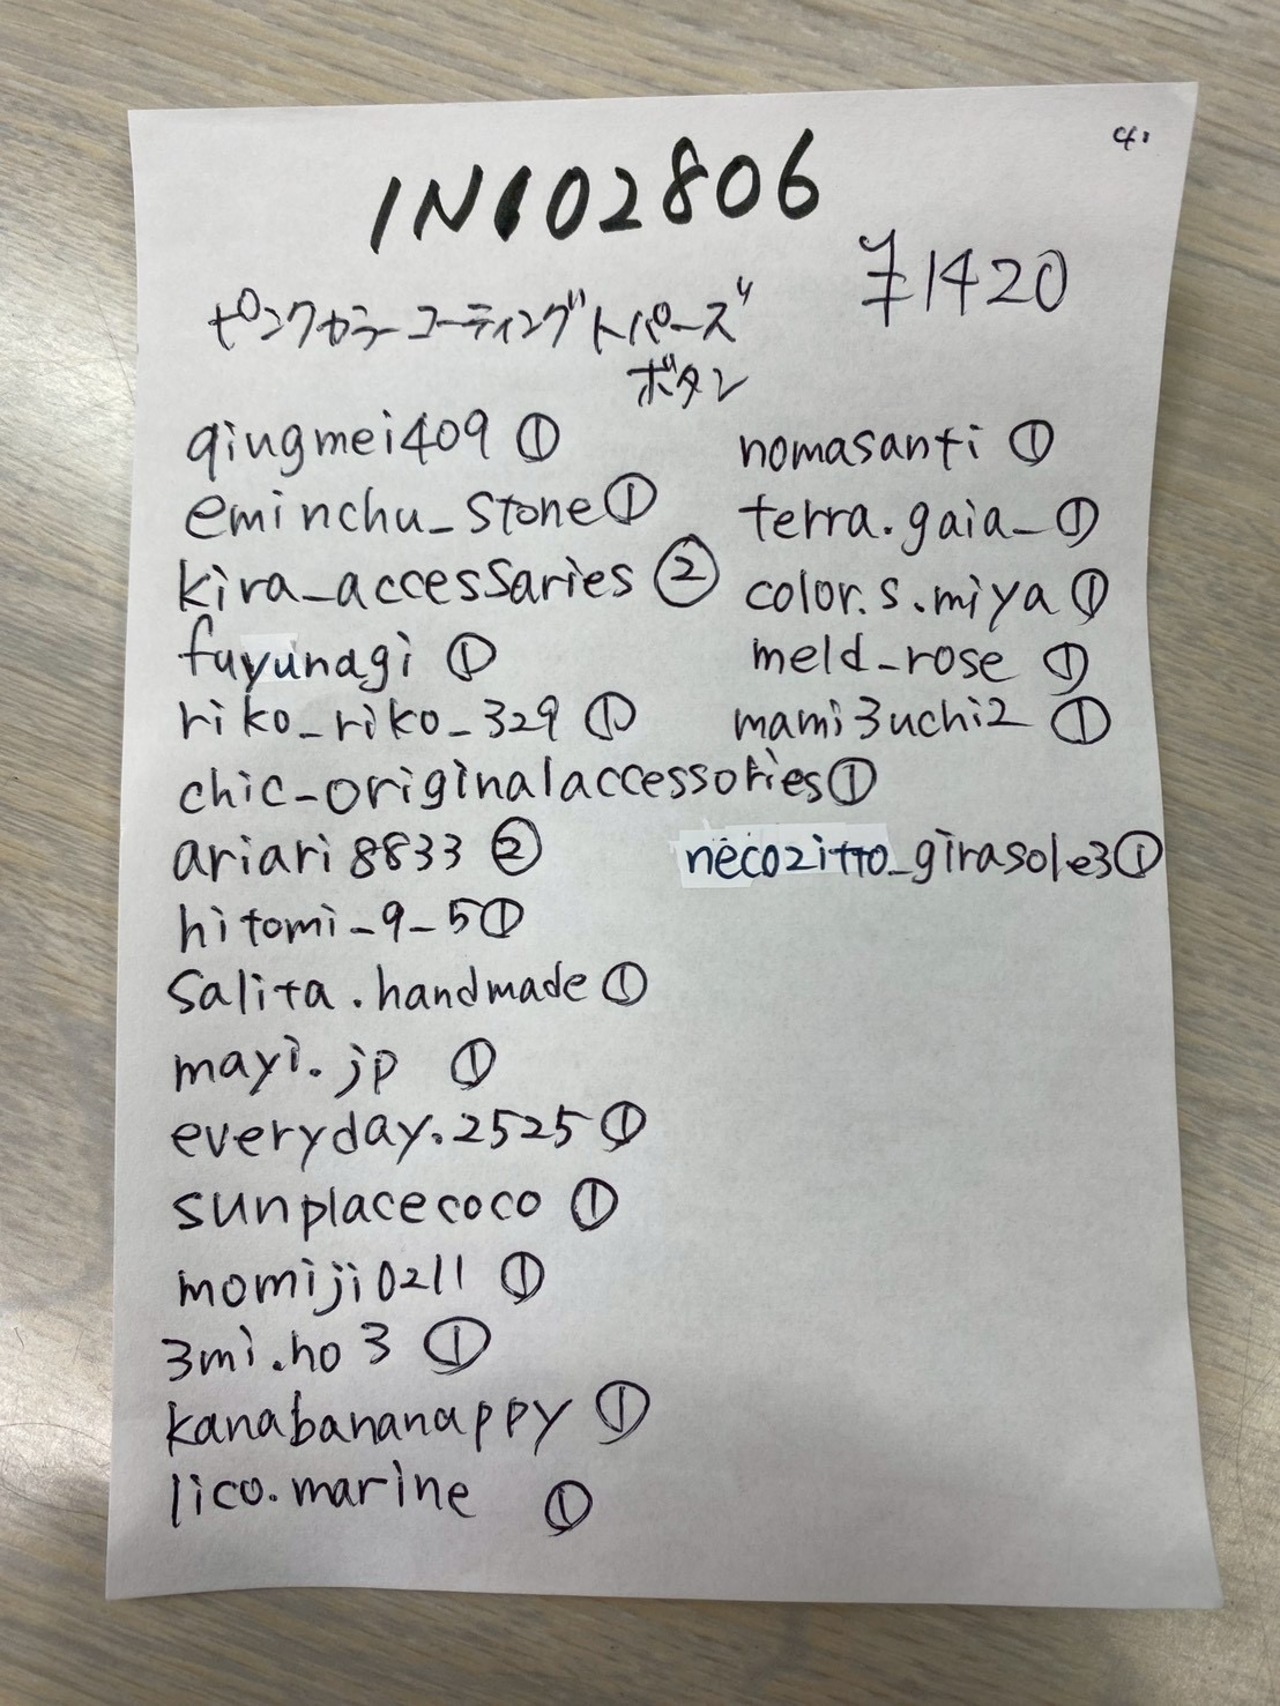 41
INC02806
¥1420
ピンクカラーコーティングトパーズ
ボタン
qiugmei409 ①
eminchu_stone ①
kira_accessaries ②
fuyunagi ①
riko_riko_329 ①
chic_originalaccessories ①
ariari8833 ②
hitomi_9_5 ①
salita.handmade ①
mayi.jp ①
everyday.2525 ①
sunplacecoco ①
momiji0211 ①
3mi.ho3 ①
kanabananappy ①
lico.marine ①
nomasanti ①
terra.gaia_ ①
color.s.miya ①
meld_rose ①
mami3uchi2 ①
necozitto_girasole3 ①